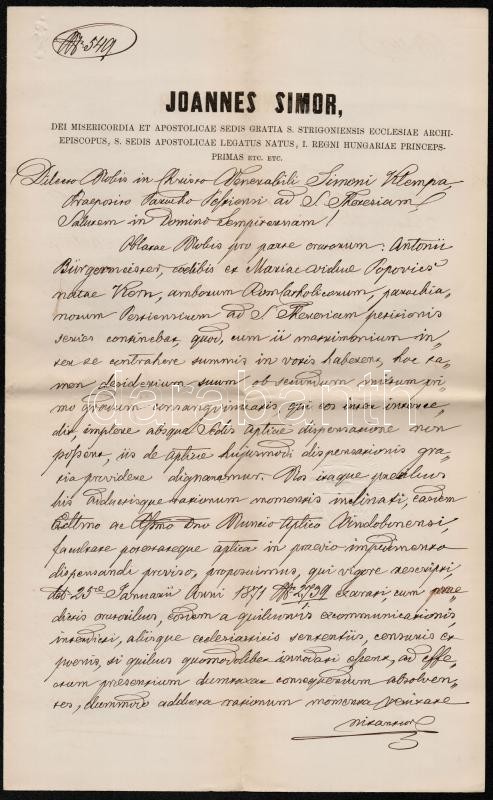 Nr: 549
JOANNES SIMOR,
DEI MISERICORDIA ET APOSTOLICAE SEDIS GRATIA S. STRIGONIENSIS ECCLESIAE ARCHI-
EPISCOPUS, S. SEDIS APOSTOLICAE LEGATUS NATUS, I. REGNI HUNGARIAE PRINCEPS-
PRIMAS ETC. ETC.
Dilecto Nobis in Christo Venerabili Simoni Klempa,
Praeposito Parocho Pestiensi ad S. Theresiam,
Salutem in Domino Sempiternam!
Oblatae Nobis pro parte oratorum: Antonii
Bürgermeister, coelibis et Mariae vidue Popovics
natae Kern, amborum Rom. Catholicorum, parochia„
norum Pestiensium ad S. Theresiam petitionis
series continebat, quod, cum ii matrimonium in„
ter se contrahere summis in votis haberent, hoc ta„
men desiderium suum ob secundum mixtum pri„
mo gradum consanguinitatis, qui eos inter interce„
dit, implere absque Sedis Apticae dispensatione non
possent, iis de Apticae hujusmodi dispensationis gra„
tia providere dignaremur. Nos itaque precibus
his adductisque rationum momentis inclinati, eosdem
Exclmo ac Nuncio Aptico Vindobonensi,
facultate potestateque aptica in praevio impedimento
dispensandi proviso, proposuimus, qui vigore rescripti,
dto 25ae Januarii Anni 1871 Nr. 2739 exarati, cum prae„
dictis oratoribus, eosdem a quibusvis excommunicationis,
interdicti, aliisque ecclesiasticis sententiis, censuris et
poenis, si quibus quomodolibet innodati essent, ad effe„
ctum praesentium dumtaxat consequendum absolven„
tes, dummodo adducta rationum momenta veritate
nitantur
darabanth